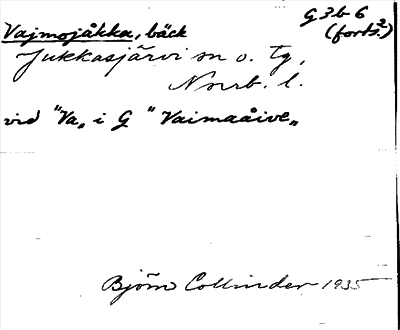 Vajmojåkka, bäck
G3b6
(forts.²)
Jukkasjärvi sn o. tg,
Norrb. l.
vid "Va„ i G "Vaimaåive„
Björn Collinder 1935